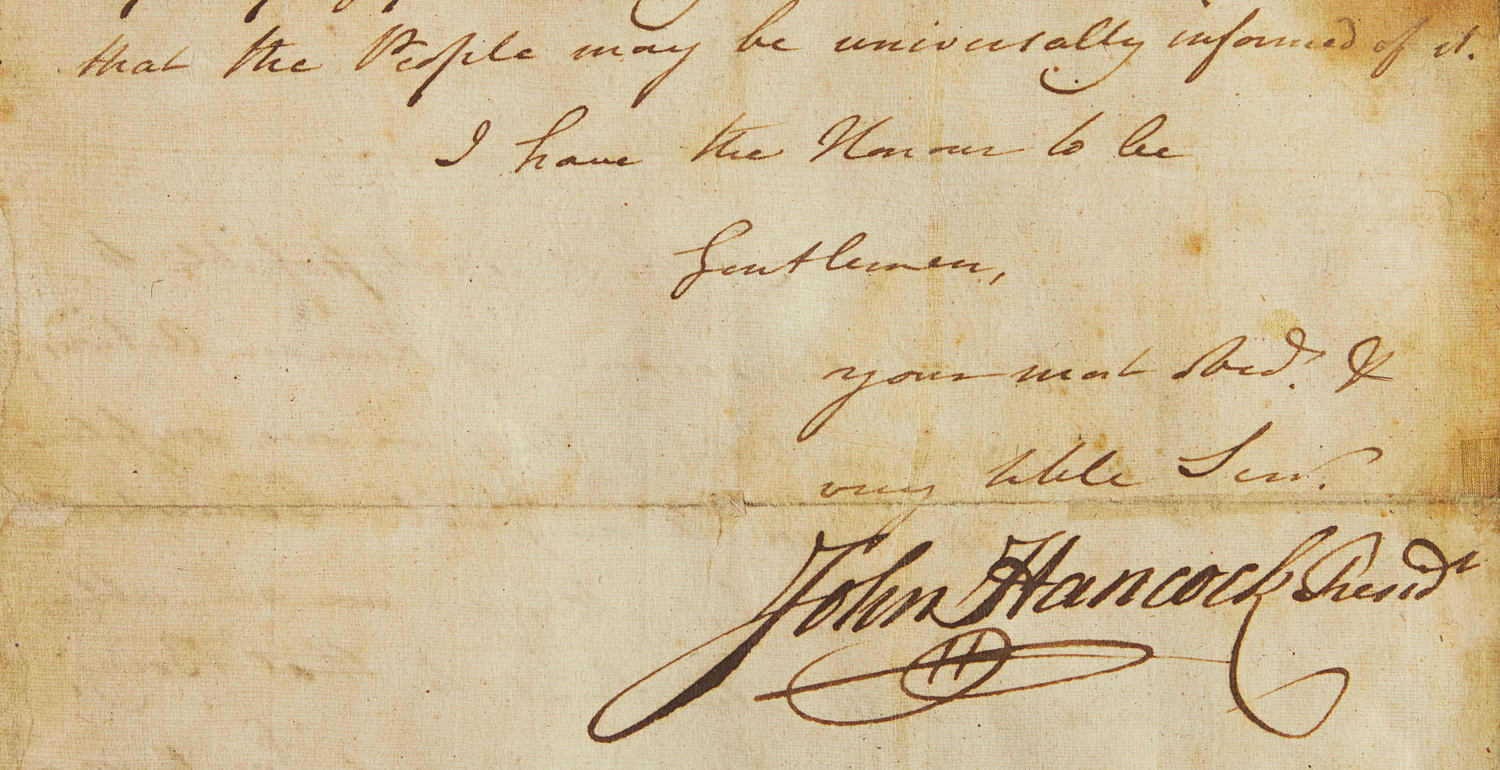 that the People may be universally informed of it.
I have the Honour to be
Gentlemen,
your most Obed.t &
very hble Serv.
John Hancock Presidt